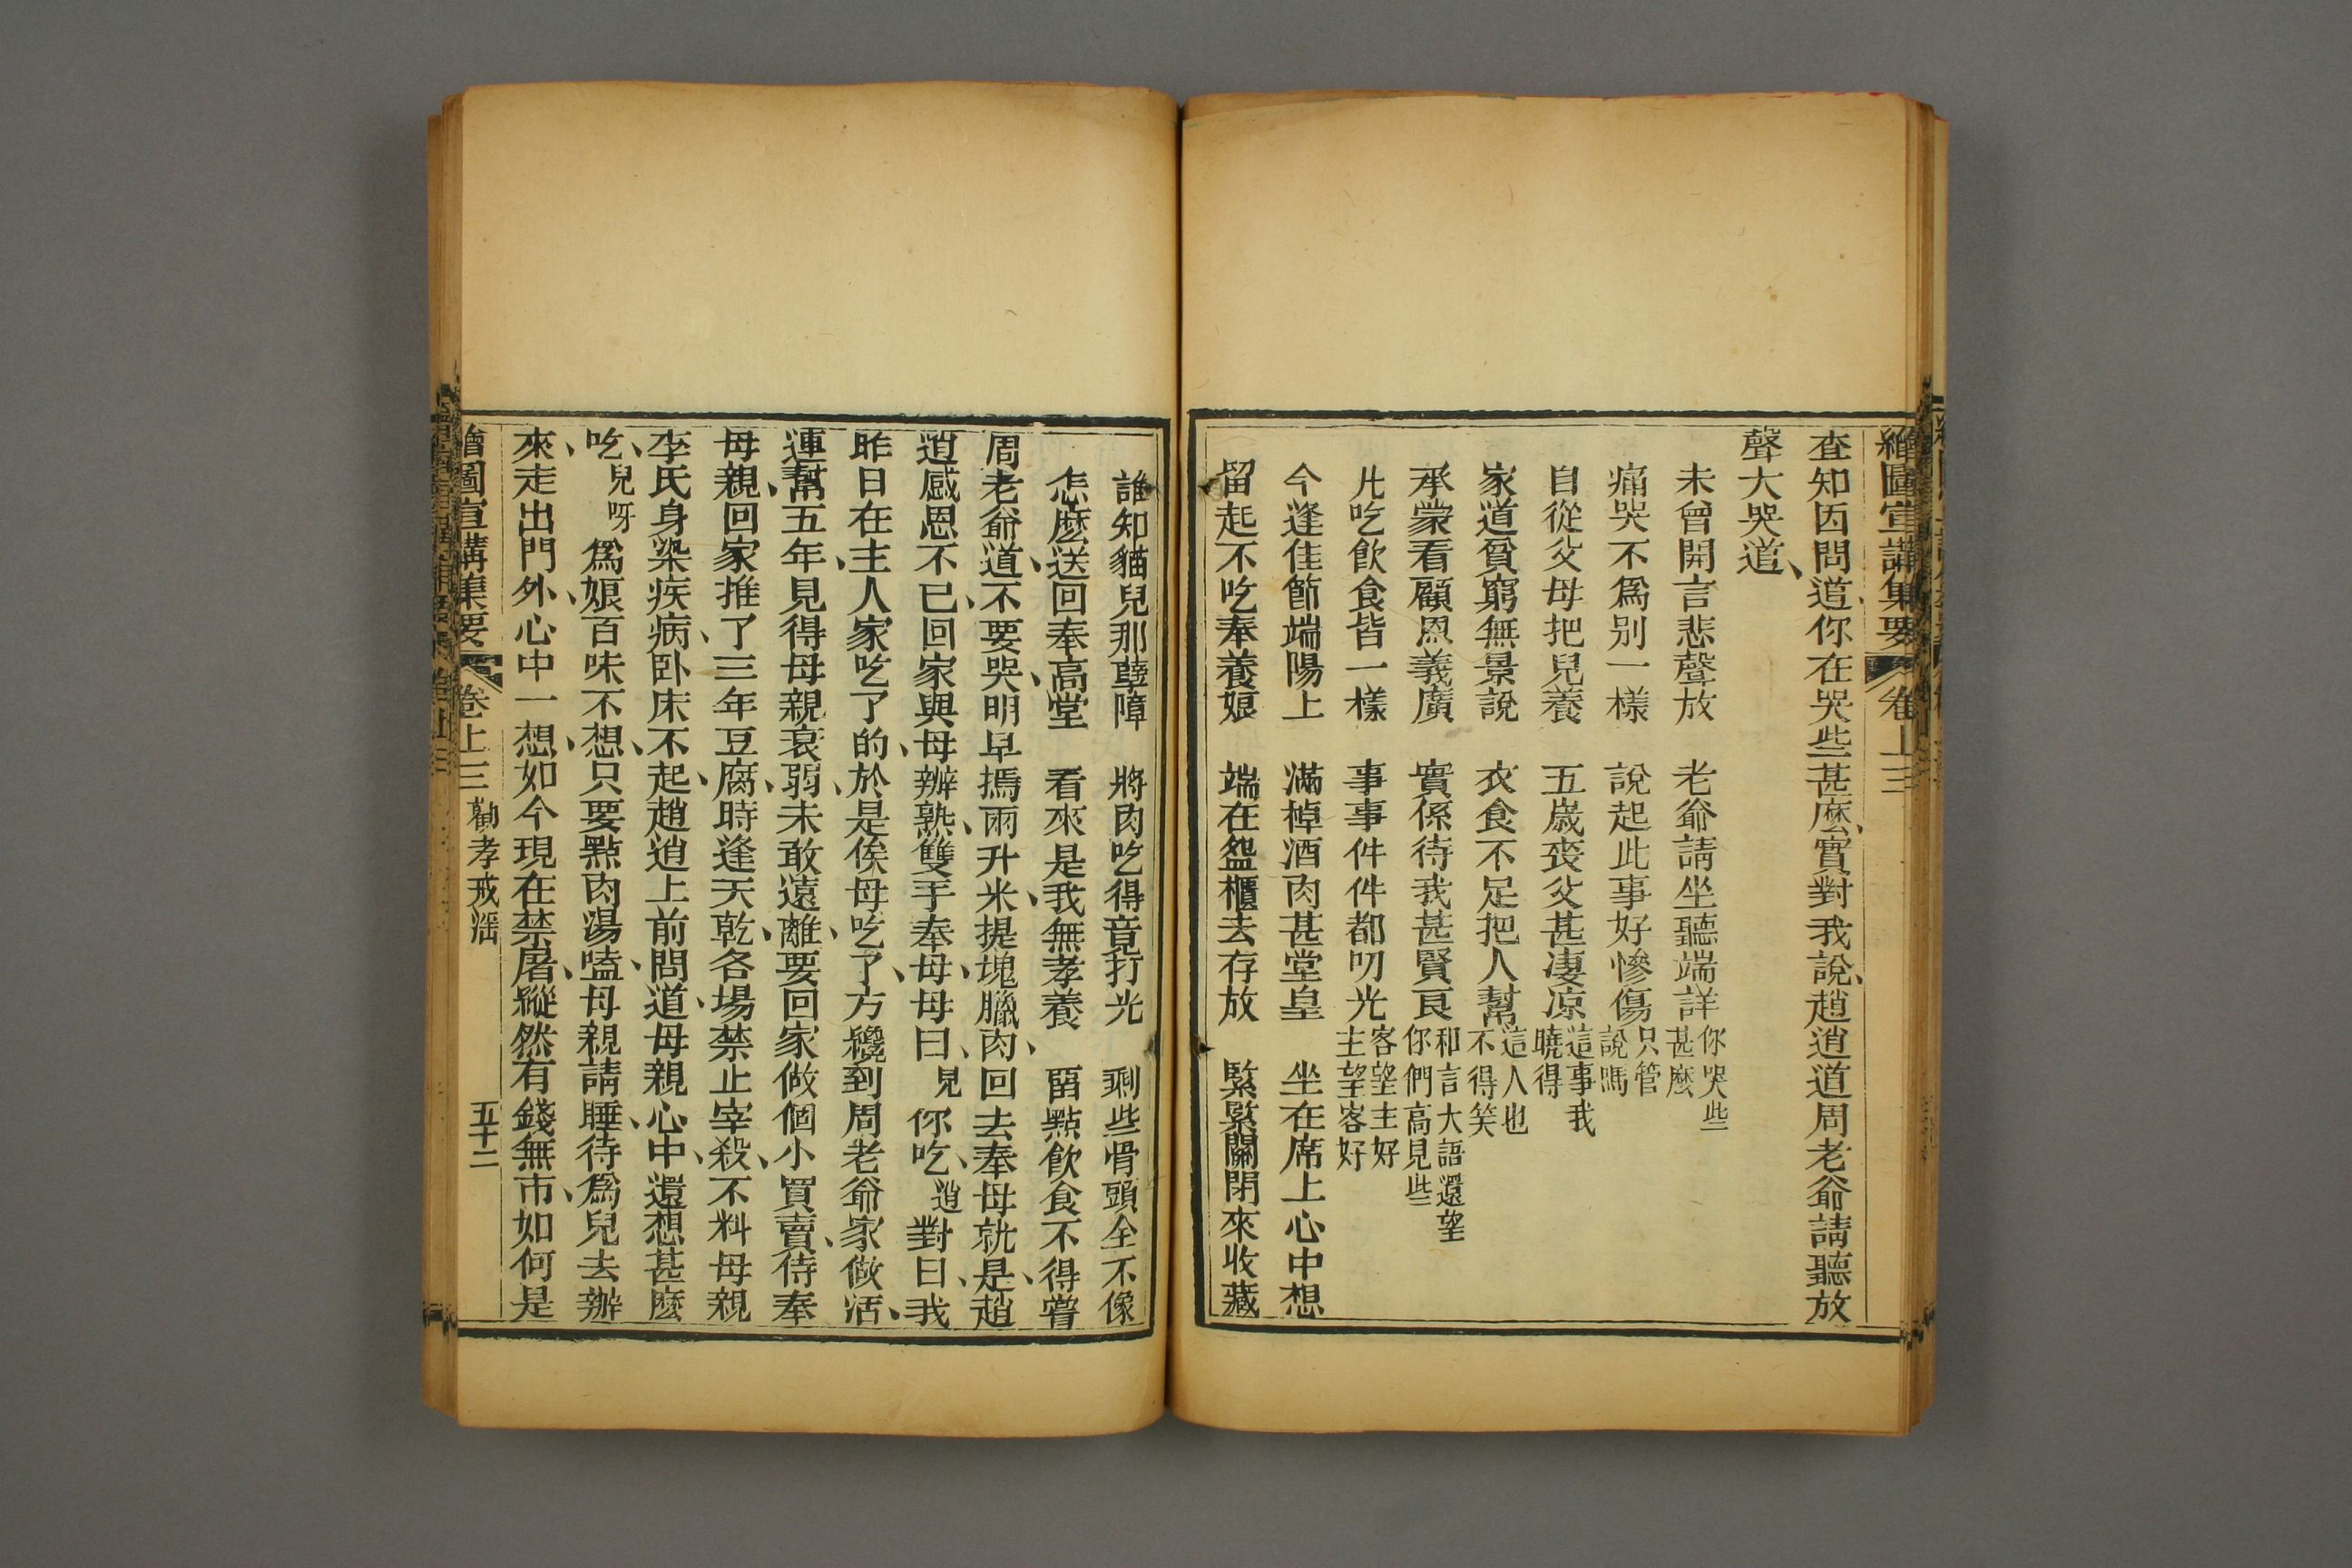 繪圖宣講集要 卷上三
查知因問道你在哭些甚麽、實對我說、趙逍道周老爺請聽放
聲大哭道、
未曾開言悲聲放 老爺請坐聽端詳 你哭些甚麽
痛哭不爲別一樣 說起此事好慘傷 只管說嗎
自從父母把兒養 五歲喪父甚凄凉 這事我曉得
家道貧窮無景說 衣食不足把人幫 這人也不得笑
承蒙看顧恩義廣 實係待我甚賢良 和言大語還望你們高見些
凡吃飲食皆一樣 事事件件都叨光 客望主好主望客好
今逢佳節端陽上 滿棹酒肉甚堂皇 坐在席上心中想
留起不吃奉養娘 端在盌櫃去存放 緊緊關閉來收藏
誰知貓兒那孽障 將肉吃得竟打光 剩些骨頭全不像
怎麽送回奉高堂 看來是我無孝養 留點飲食不得嘗
周老爺道、不要哭、明早撝兩升米、提塊臘肉、回去奉母就是、趙
逍感恩不已、回家與母辦熟、雙手奉母、母曰、見你吃、逍對曰、我
昨日在主人家吃了的、於是俟母吃了、方纔到周老爺家做活、
連幫五年、見得母親衰弱、未敢遠離、要回家做個小買賣、待奉
母親、回家推了三年豆腐、時逢天乾、各場禁止宰殺、不料母親
李氏身染疾病、卧床不起、趙逍上前問道、母親心中、還想甚麽
吃、兒呀爲娘百味不想、只要點肉湯嗑、母親請睡、待爲兒去辦
來、走出門外、心中一想、如今現在禁屠、縱然有錢無市、如何是
繪圖宣講集要 卷上三 勸孝戒滛 五十二